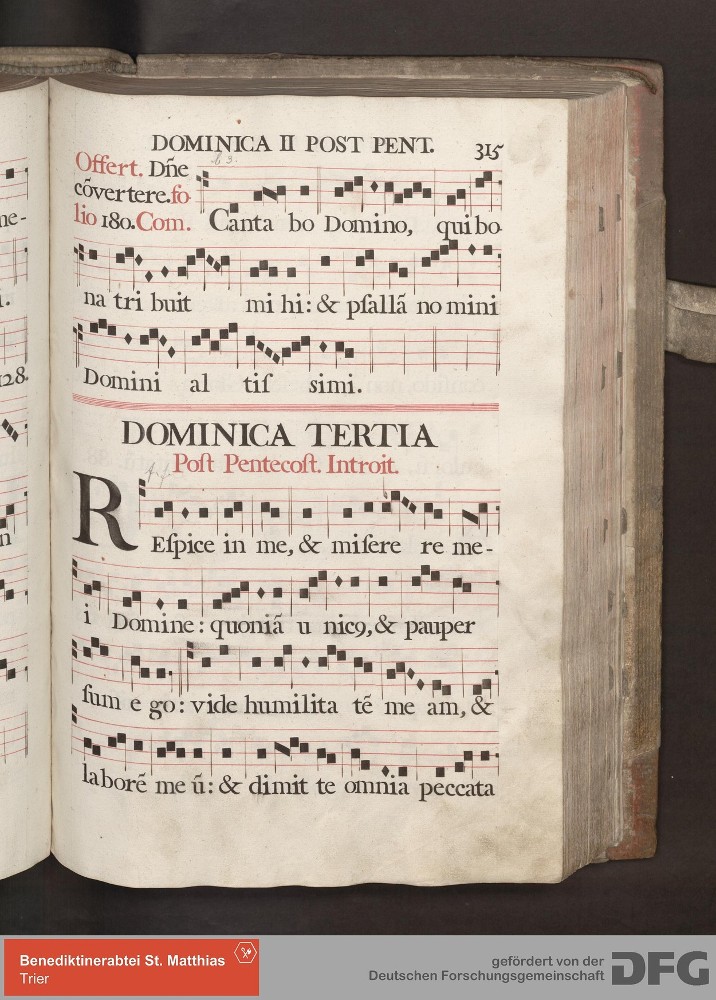 DOMINICA II POST PENT. 315
Offert. Dn̄e
cōvertere. fo
lio 180. Com. Canta bo Domino, qui bo-
na tri buit mi hi: & pſallā no mini
Domini al tiſ simi.
DOMINICA TERTIA
Poſt Pentecoſt. Introit.
REſpice in me, & miſere re me-
i Domine: quoniā u nic9, & pauper
ſum e go: vide humilita tē me am, &
laborē me ū: & dimit te omnia peccata
ne-
i.
128.
n
Benediktinerabtei St. Matthias
Trier
gefördert von der
Deutschen Forschungsgemeinschaft DFG